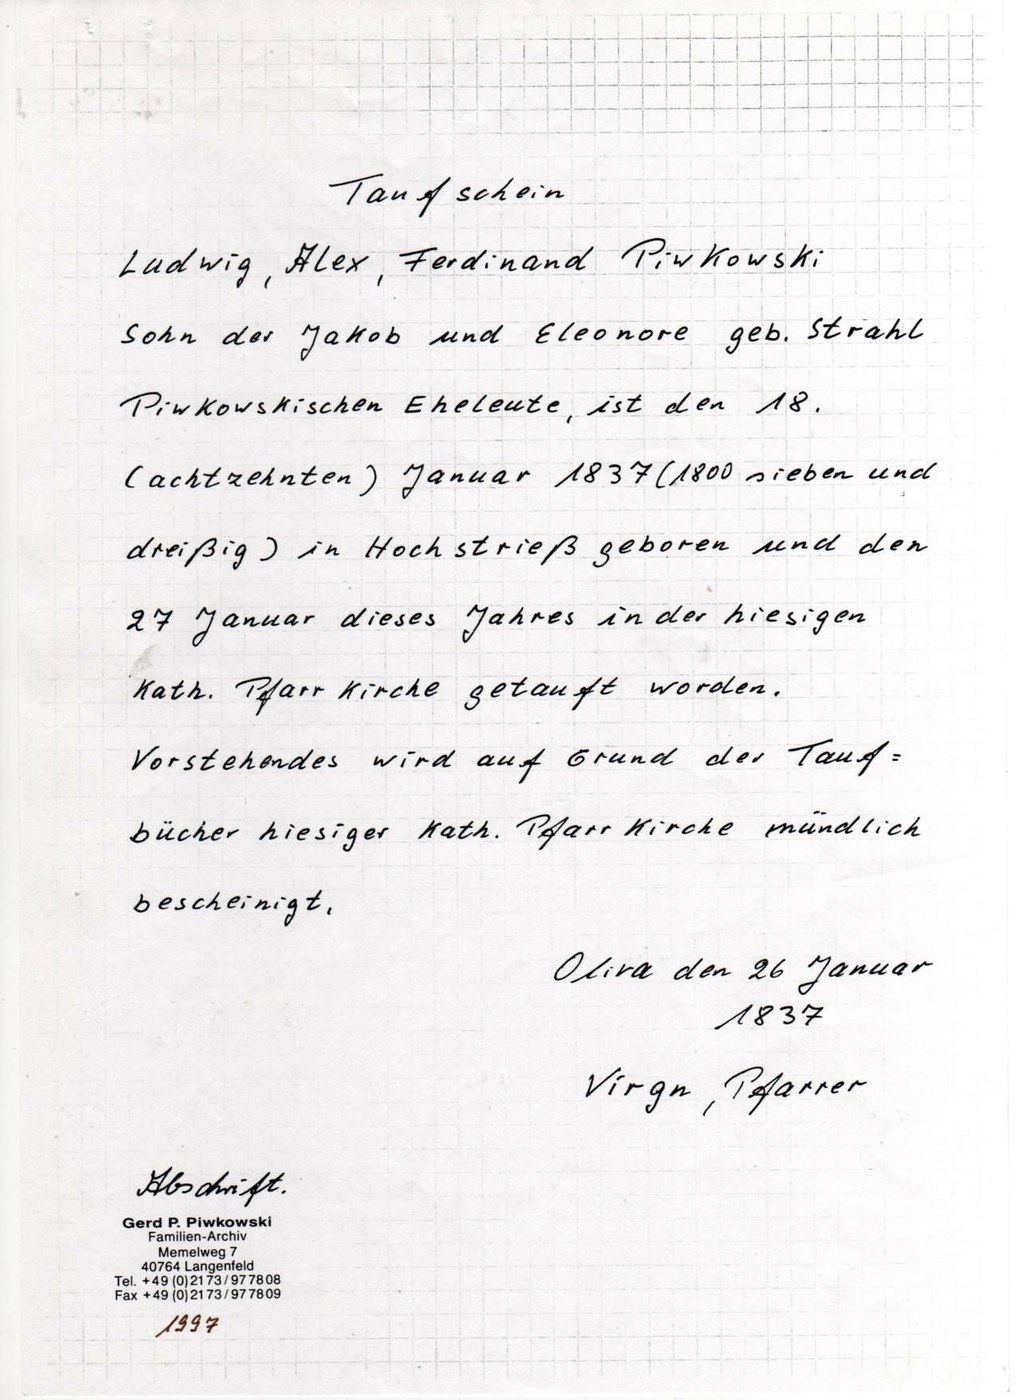 Taufschein
Ludwig, Alex, Ferdinand Piwkowski
Sohn der Jakob und Eleonore geb. Strahl
Piwkowskischen Eheleute, ist den 18.
(achtzehnten) Januar 1837 (1800 sieben und
dreißig) in Hochstrieß geboren und den
27 Januar dieses Jahres in der hiesigen
Kath. Pfarrkirche getauft worden.
Vorstehendes wird auf Grund der Tauf=
bücher hiesiger Kath. Pfarrkirche mündlich
bescheinigt.
Oliva den 26 Januar
1837
Virgn, Pfarrer
Abschrift.
Gerd P. Piwkowski
Familien-Archiv
Memelweg 7
40764 Langenfeld
Tel. +49 (0) 21 73 / 97 78 08
Fax +49 (0) 21 73 / 97 78 09
1997